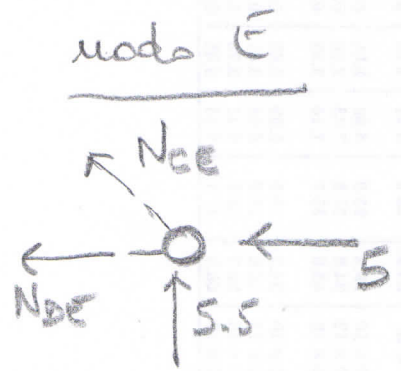 nodo E
NCE
5
NDE
5.5